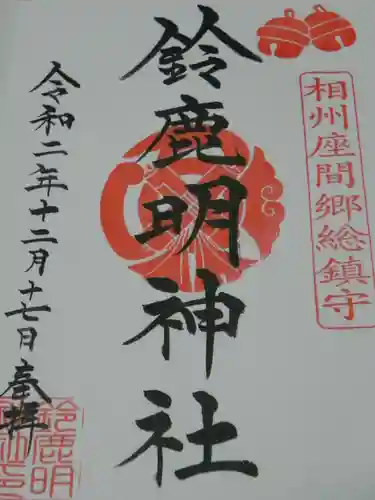 相州座間郷総鎮守
鈴鹿明神社
令和二年十二月十七日 奉拝
鈴鹿明